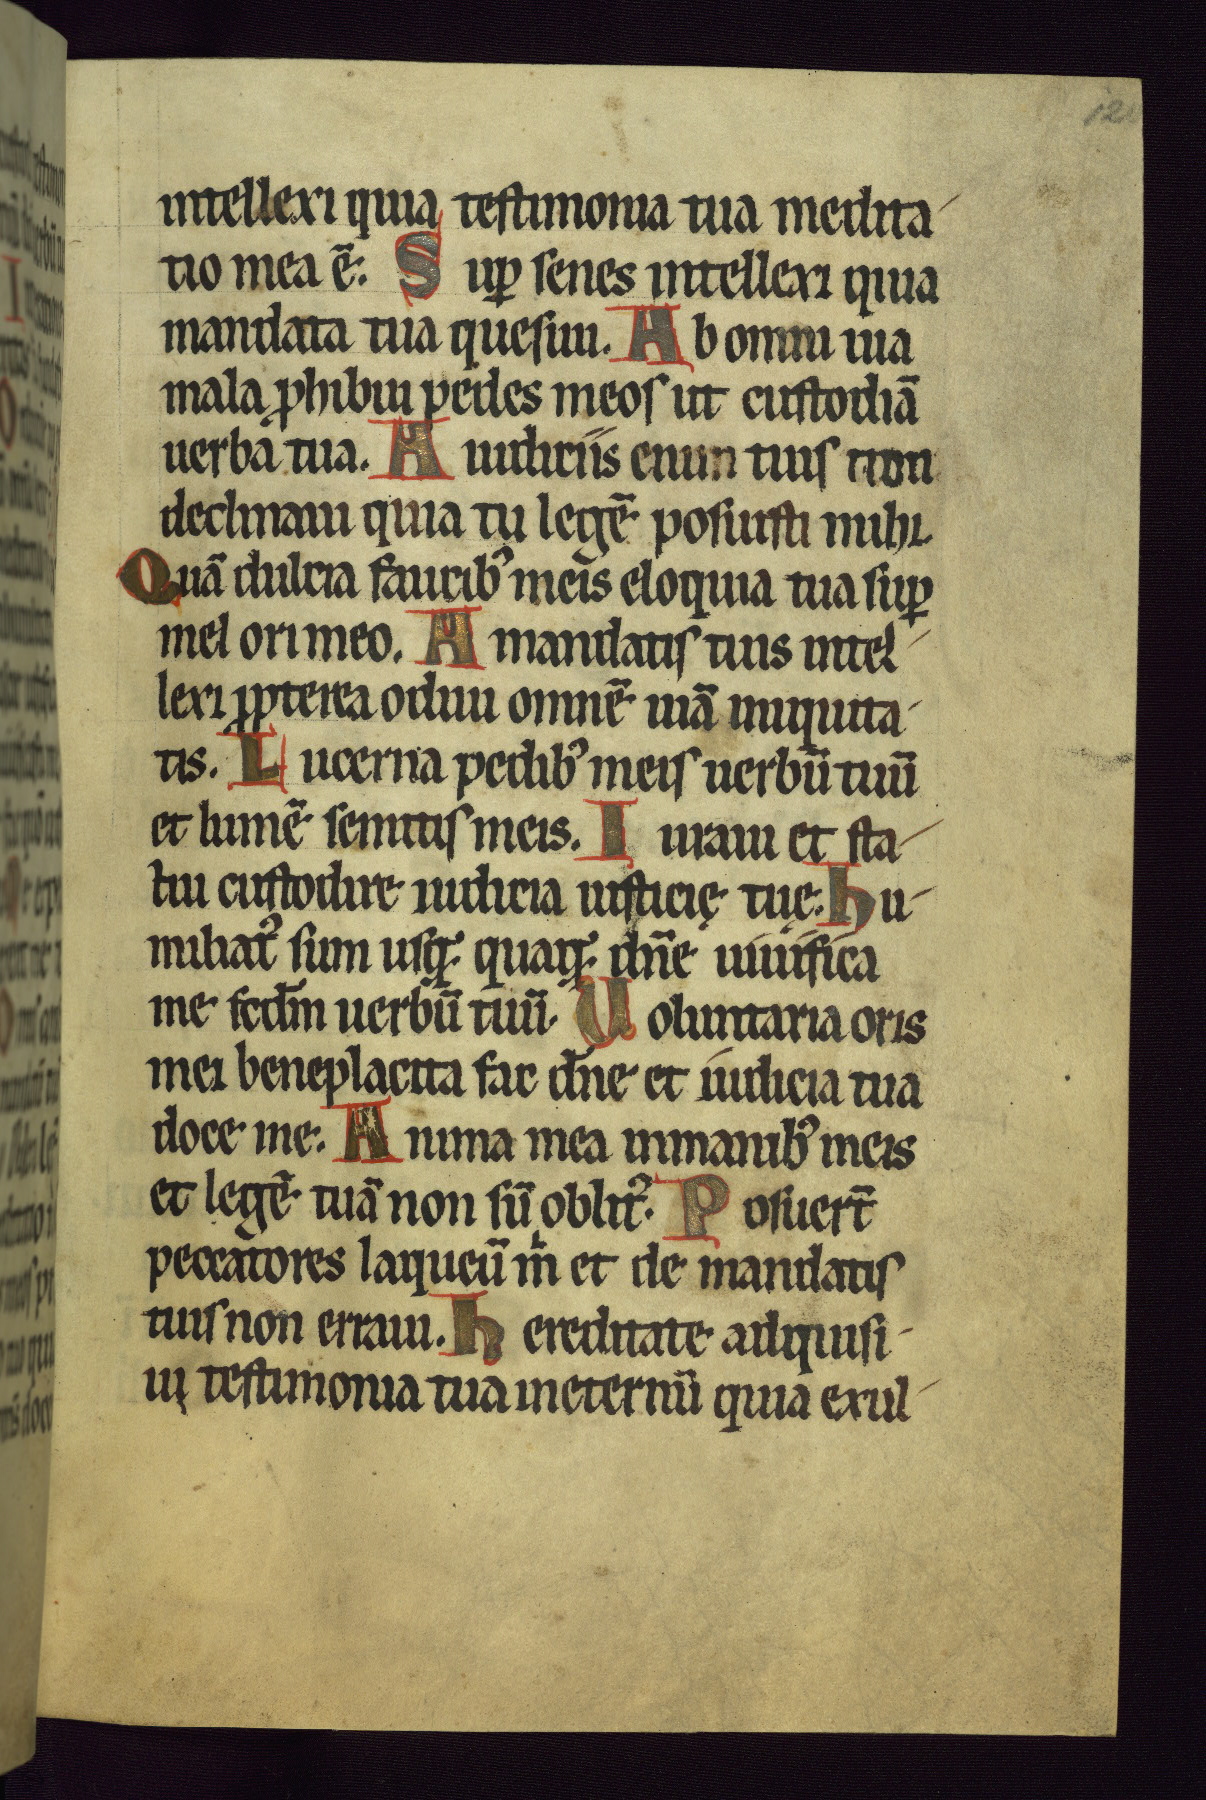 intellexi quia testimonia tua medita-
tio mea ē. Sup senes intellexi quia
mandata tua quesiui. Ab omni uia
mala phibui pedes meos ut custodiā
uerba tua. A iudiciis enim tuis non
declinaui quia tu legē posuisti mihi.
Quā dulcia faucib' meis eloquia tua sup
mel ori meo. A mandatis tuis intel-
lexi ppterea odiui omnē uiā iniquita-
tis. Lucerna pedib' meis uerbū tuū
et lumē semitis meis. Iuraui et sta-
tui custodire iudicia iusticię tuę. Hu-
miliat' sum usq; quaq; dn̄e uiuifica
me scd̄m uerbū tuū. Voluntaria oris
mei beneplacita fac dn̄e et iudicia tua
doce me. Anima mea in manib' meis
et legē tuā non sū oblit'. Posuert̄
peccatores laqueū m̄ et de mandatis
tuis non erraui. Hereditate adquisi-
ui testimonia tua in eternū quia exul-